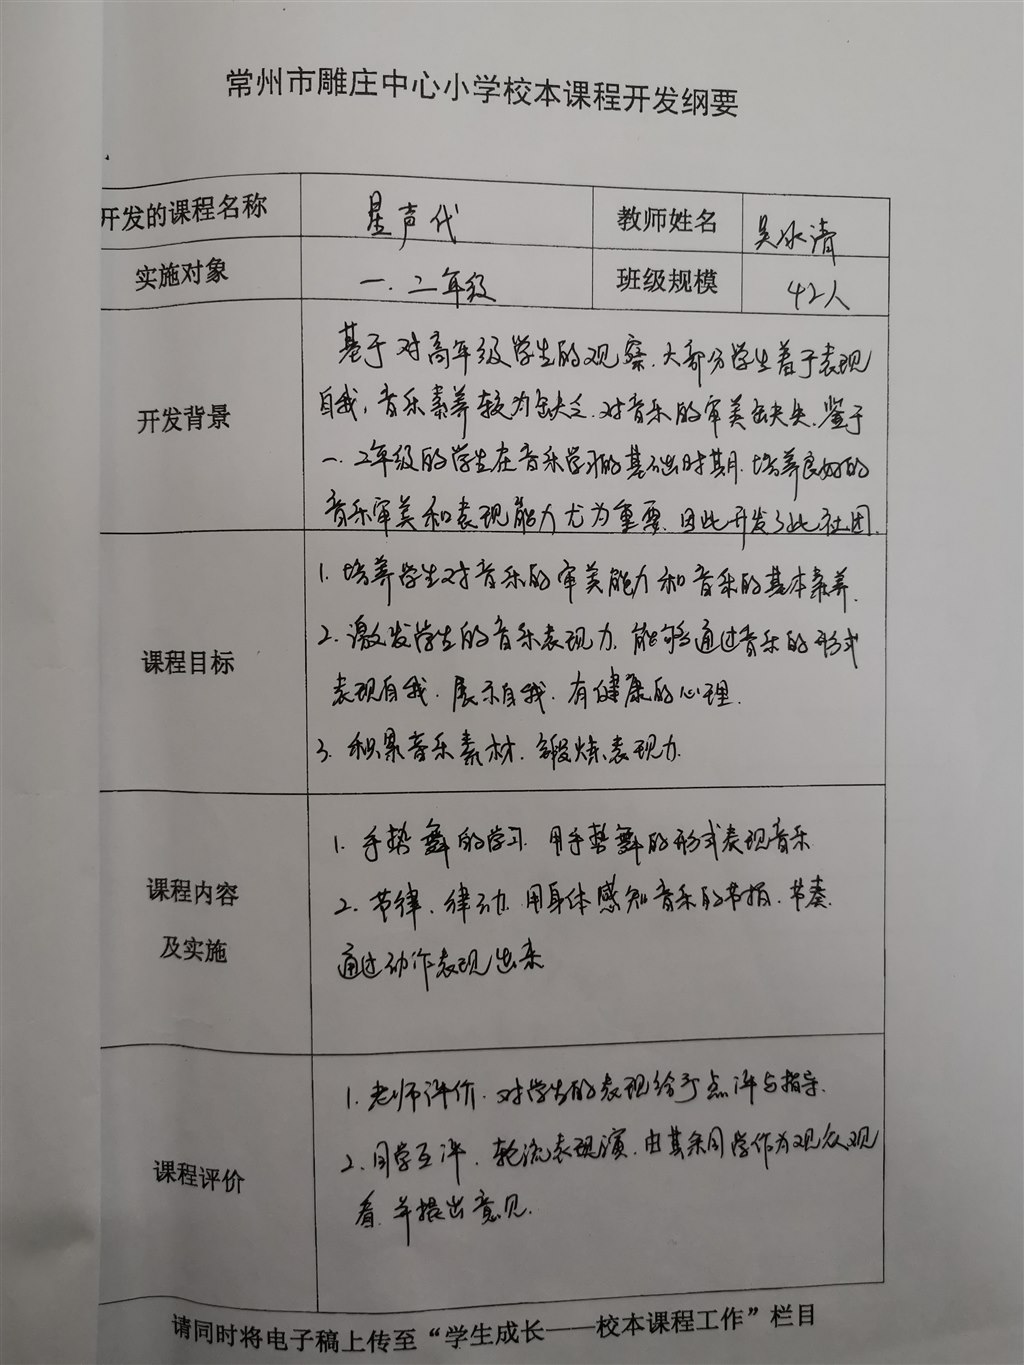 常州市雕庄中心小学校本课程开发纲要
开发的课程名称
星声代
教师姓名
吴冰清
实施对象
一.二年级
班级规模
42人
开发背景
基于对高年级学生的观察.大部分学生羞于表现
自我,音乐素养较为缺乏.对音乐的审美缺失.鉴于
一.2年级的学生在音乐学习的基础时期.培养良好的
音乐审美和表现能力尤为重要.因此开发了此社团.
课程目标
1.培养学生对音乐的审美能力和音乐的基本素养.
2.激发学生的音乐表现力.能够通过音乐的形式
表现自我.展示自我.有健康的心理.
3.积累音乐素材.锻炼表现力.
课程内容
及实施
1.手势舞的学习.用手势舞的形式表现音乐
2.节律、律动.用身体感知音乐的节拍.节奏.
通过动作表现出来
课程评价
1.老师评价.对学生的表现给予点评与指导.
2.同学互评.轮流表现演.由其余同学作为观众观
看.并提出意见.
请同时将电子稿上传至“学生成长——校本课程工作”栏目